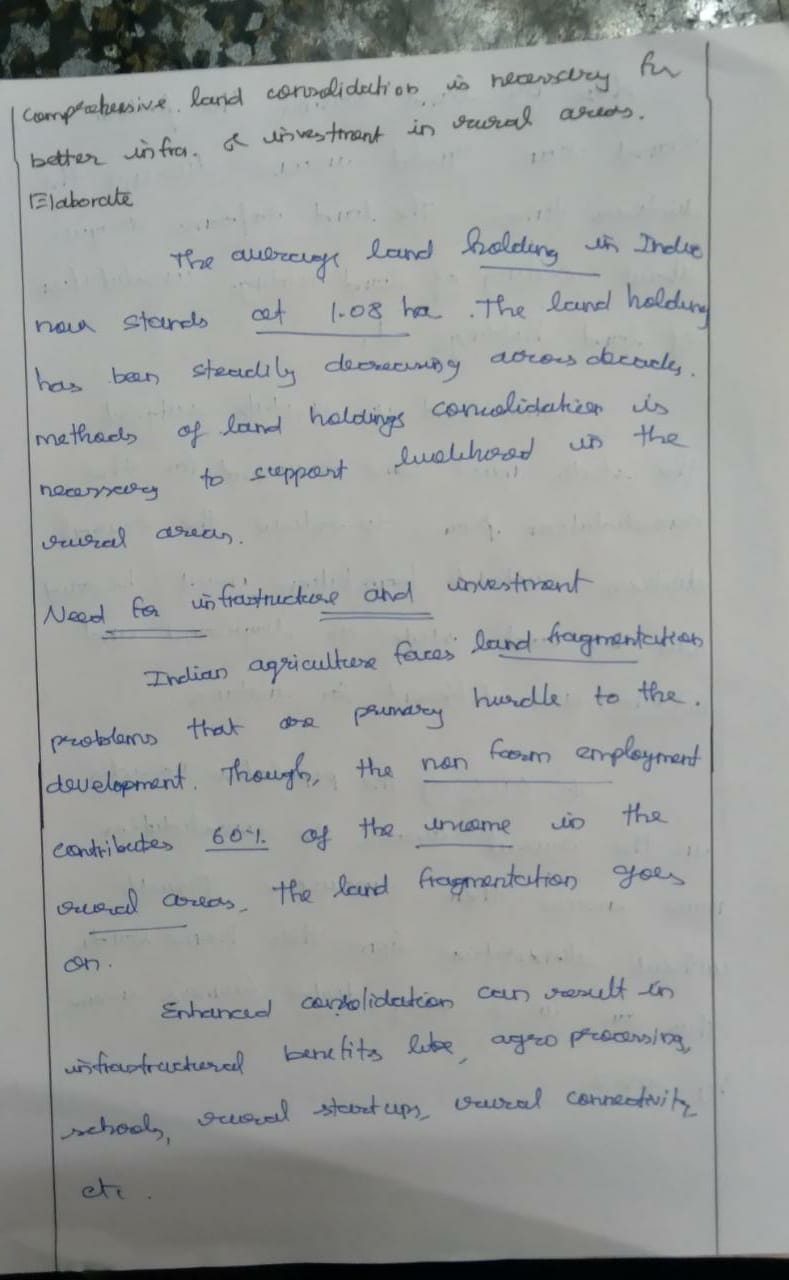 Comprehensive land consolidation is necessary for
better infra. & investment in rural areas.
Elaborate
The average land holding in India
now stands at 1.08 ha. The land holding
has been steadily decreasing across decades.
methods of land holdings consolidation is
necessary to support livelihood in the
rural areas.
Need for infrastructure and investment
Indian agriculture faces land fragmentation
problems that are primary hurdle to the.
development. Though, the non farm employment
contributes 60% of the income in the
rural areas, the land fragmentation goes
on.
Enhanced consolidation can result in
infrastructural benefits like, agro processing,
schools, rural startups, rural connectivity
etc.